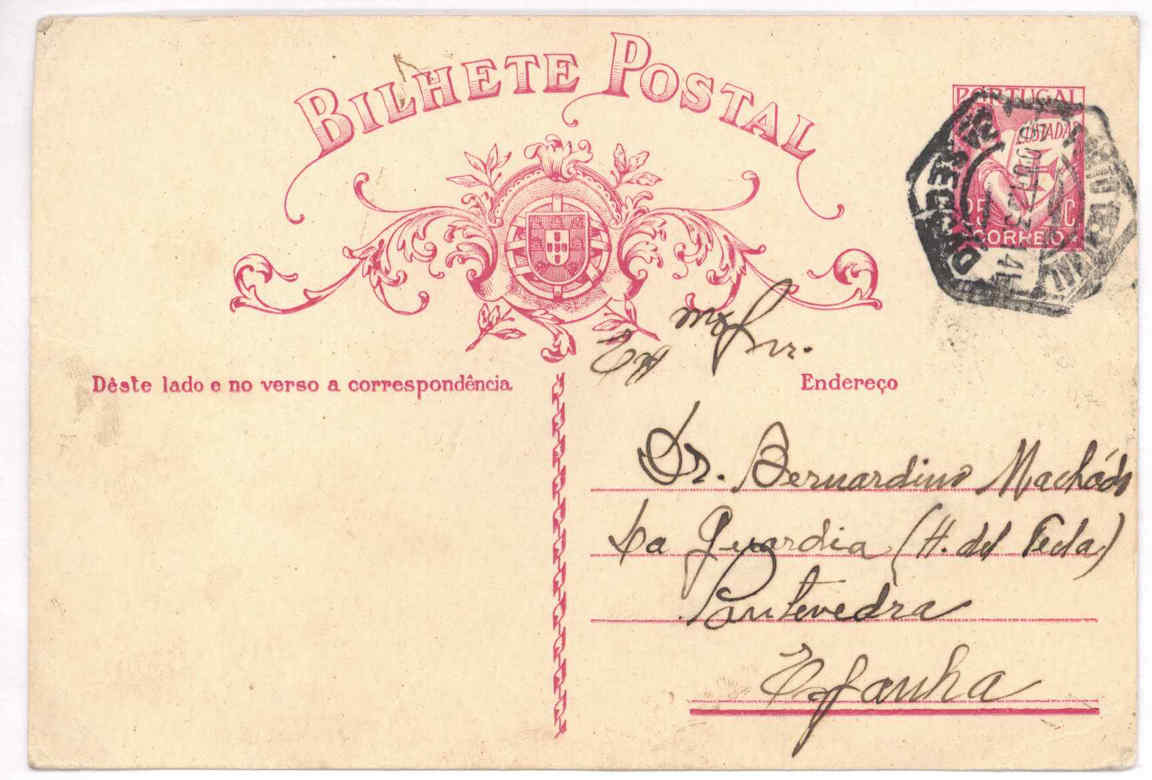 BILHETE POSTAL
PORTUGAL
25 C
CORREIO
Exmo Snr.
Dêste lado e no verso a correspondência
Endereço
Dr. Bernardino Machado
La Guardia (H. del Tecla)
Pontevedra
Espanha